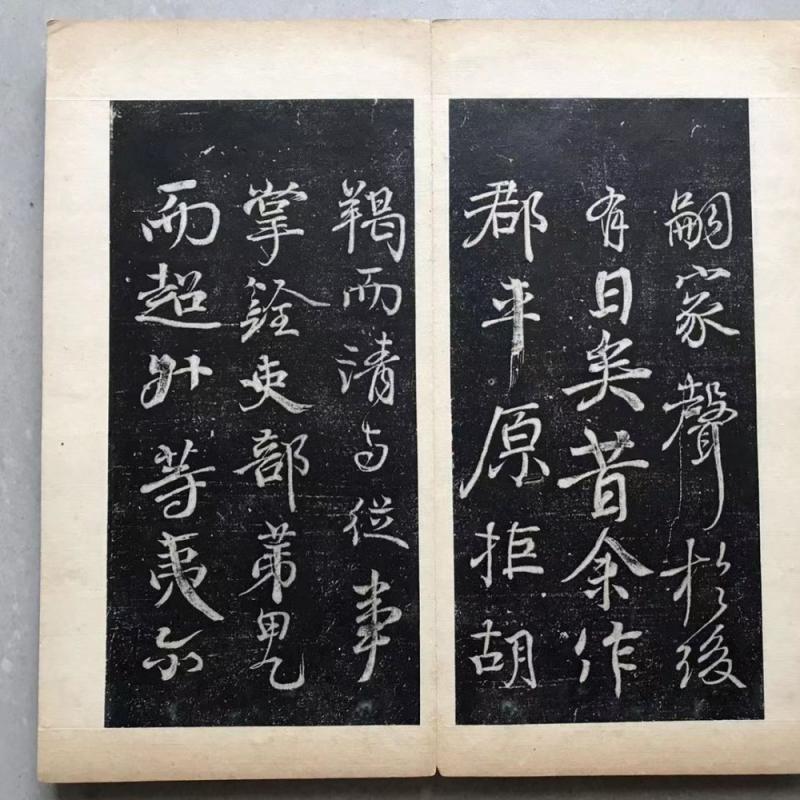 嗣家聲於後
有日矣昔余作
郡平原拒胡
羯而清与從事
掌銓吏部苐甲乙
而超升等夷尔